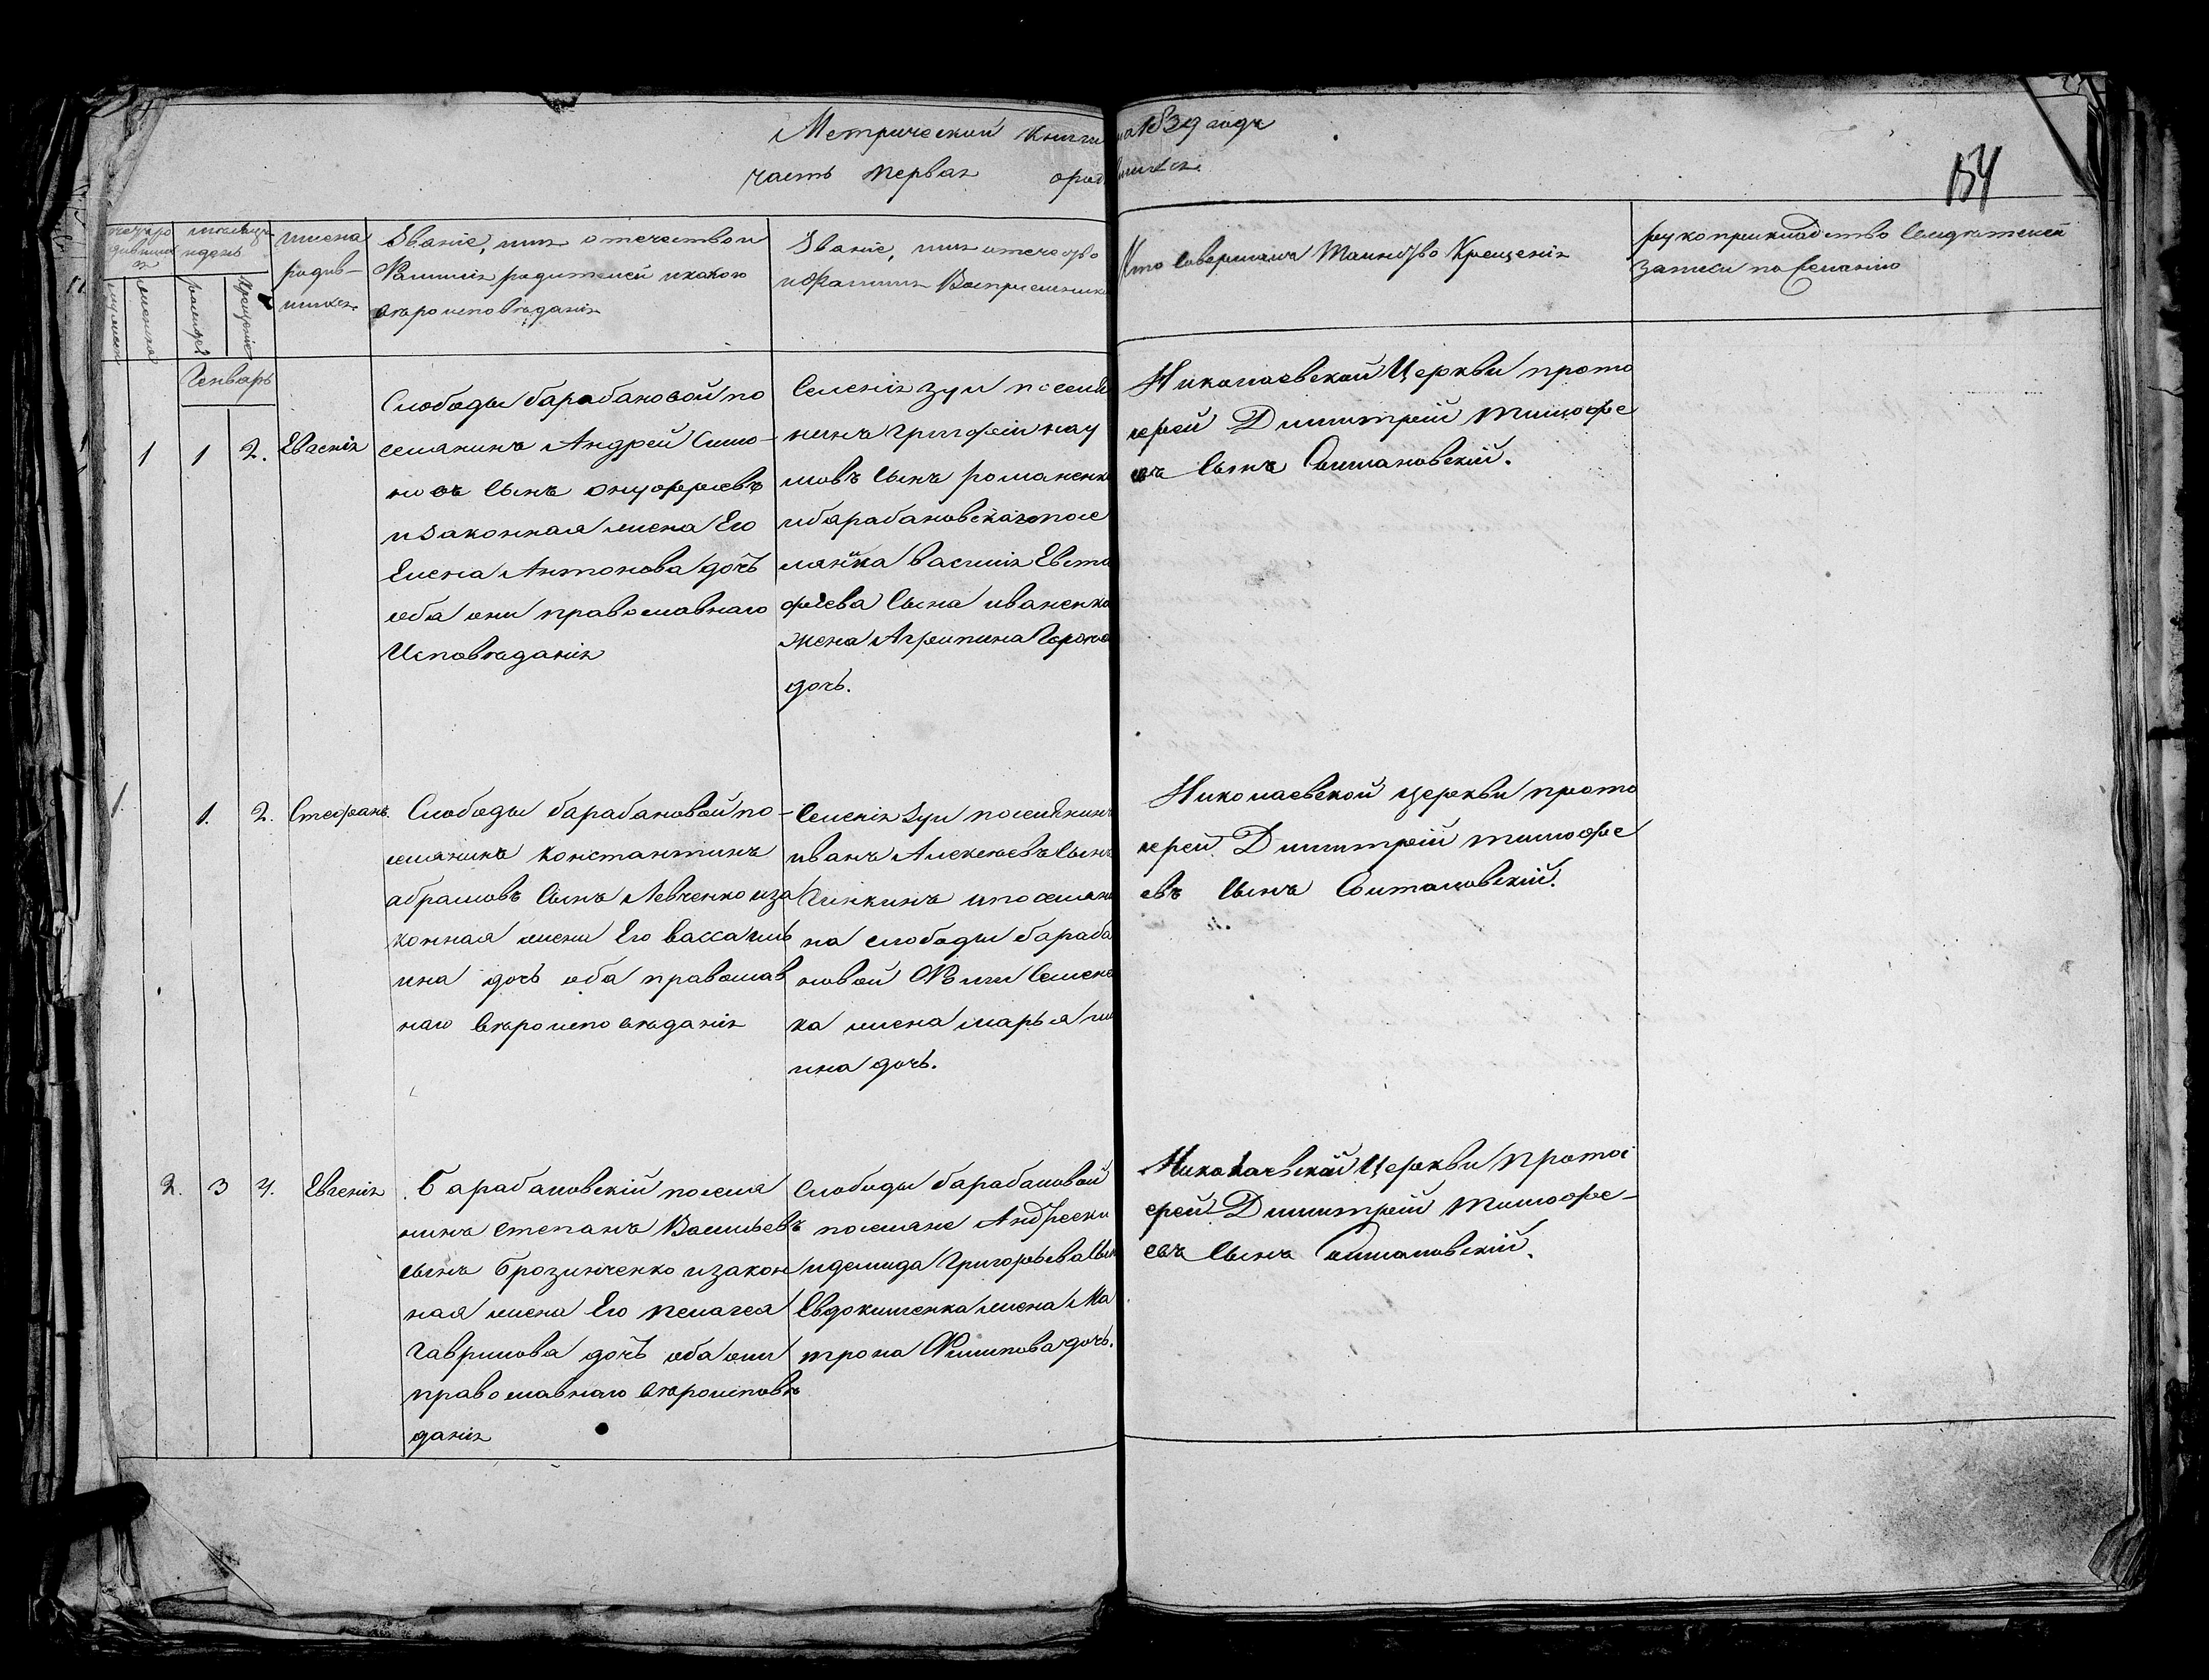 Метрической книги на 1839 годъ
часть первая о родившихся.
154
счетъ родившихся
мѣсяцъ и день
имена родившихся
Званіе, имя отечество и
Фамилія родителей и какого
вѣроисповѣданія
Званіе, имя отечество
и Фамилія Воспріемниковъ
Кто совершалъ Таинство Крещенія
рукоприкладство свидѣтелей
записи по желанію
мужеска
женска
рожденія
крещенія
Генварь
1 1 2. Евгенія
Слободы барабановой по
селянинъ Андрей Симо-
новъ сынъ онуфріевъ
и законная жена Его
Елена Антонова дочь
оба они православнаго
Исповѣданія
Селенія зуи поселя
нинъ григорій нау
мовъ сынъ романенко
и барабановскаго посе
лянина василія Евста
фіева сына иваненка
жена Агрипина
дочь.
Николаевской Церкви прото
іерей Димитрій тимофе
евъ сынъ
1 1. 2. Стефанъ.
Слободы барабановой по-
селянинъ константинъ
абрамовъ сынъ Левченко и за
конная жена Его васса иль
ина дочь оба православ
наго вѣроисповѣданія
Селенія Зуи поселянинъ
иванъ Алексѣевъ сынъ
и поселяни
на слободы бараба
новой Семена
ка жена марья
ина дочь.
Николаевской церкви прото
іерей Димитрій тимофе
евъ сынъ
2. 3 4. Евгенія
Барабановскій поселя
нинъ степанъ Васильевъ
сынъ брозинченко и закон
ная жена Его пелагея
гаврилова дочь оба они
православнаго вѣроисповѣ
данія
Слободы барабановой
поселяне Андрей
и демида Григорьева сына
Евдокименка жена Ма
трона Филипова дочь.
Николаевской Церкви протоі
ерей Димитрій тимофе-
евъ сынъ